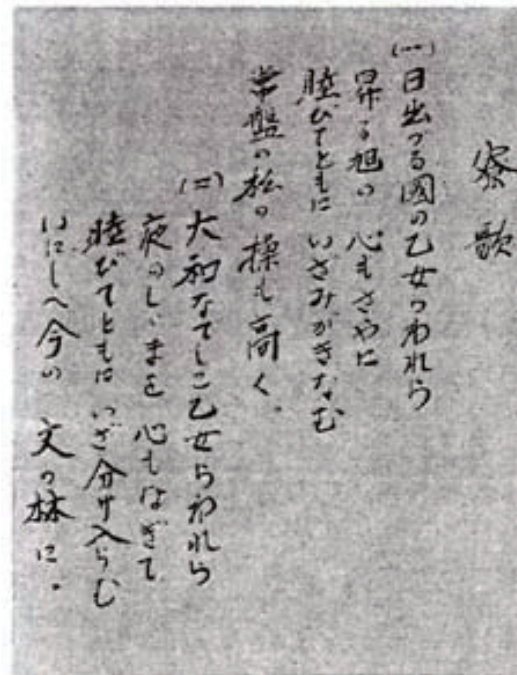 寮歌
(一)日出づる國の乙女のわれら
昇る旭の 心もさやに
睦びてともに いざみがきなむ
常盤の松の 操も高く。
(二)大和なでしこ乙女らわれら
夜のしゞまを 心もなぎて
睦びてともに いざ分け入らむ
いにしへ今の 文の林に。